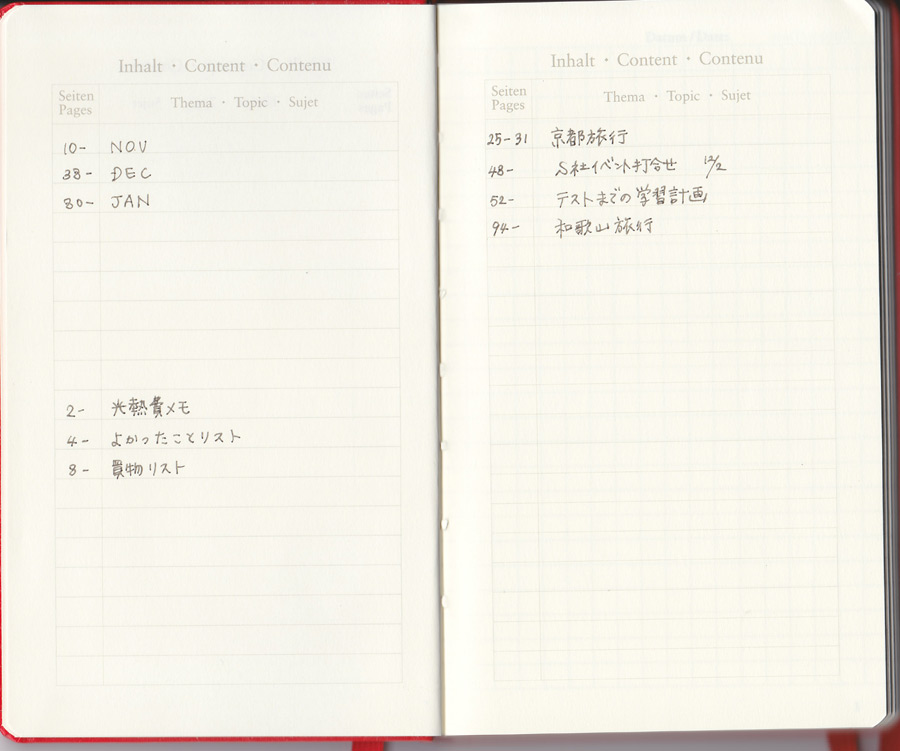 Inhalt · Content · Contenu
Seiten Pages Thema · Topic · Sujet
10- NOV
38- DEC
80- JAN
2- 光熱費メモ
4- よかったことリスト
8- 買物リスト
Inhalt · Content · Contenu
Seiten Pages Thema · Topic · Sujet
25-31 京都旅行
48- S社イベント打合せ 12/2
52- テストまでの学習計画
94- 和歌山旅行